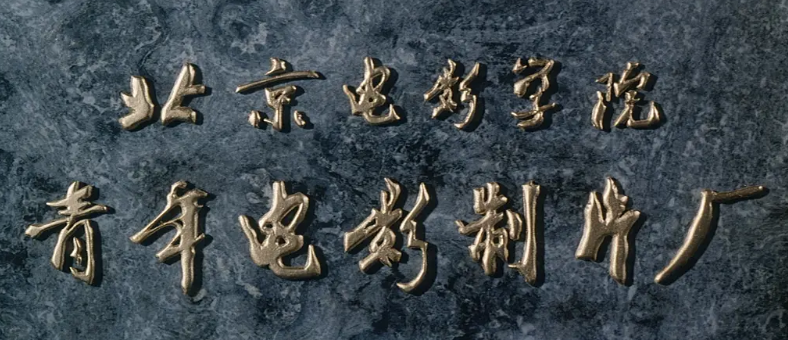 北京电影学院
青年电影制片厂